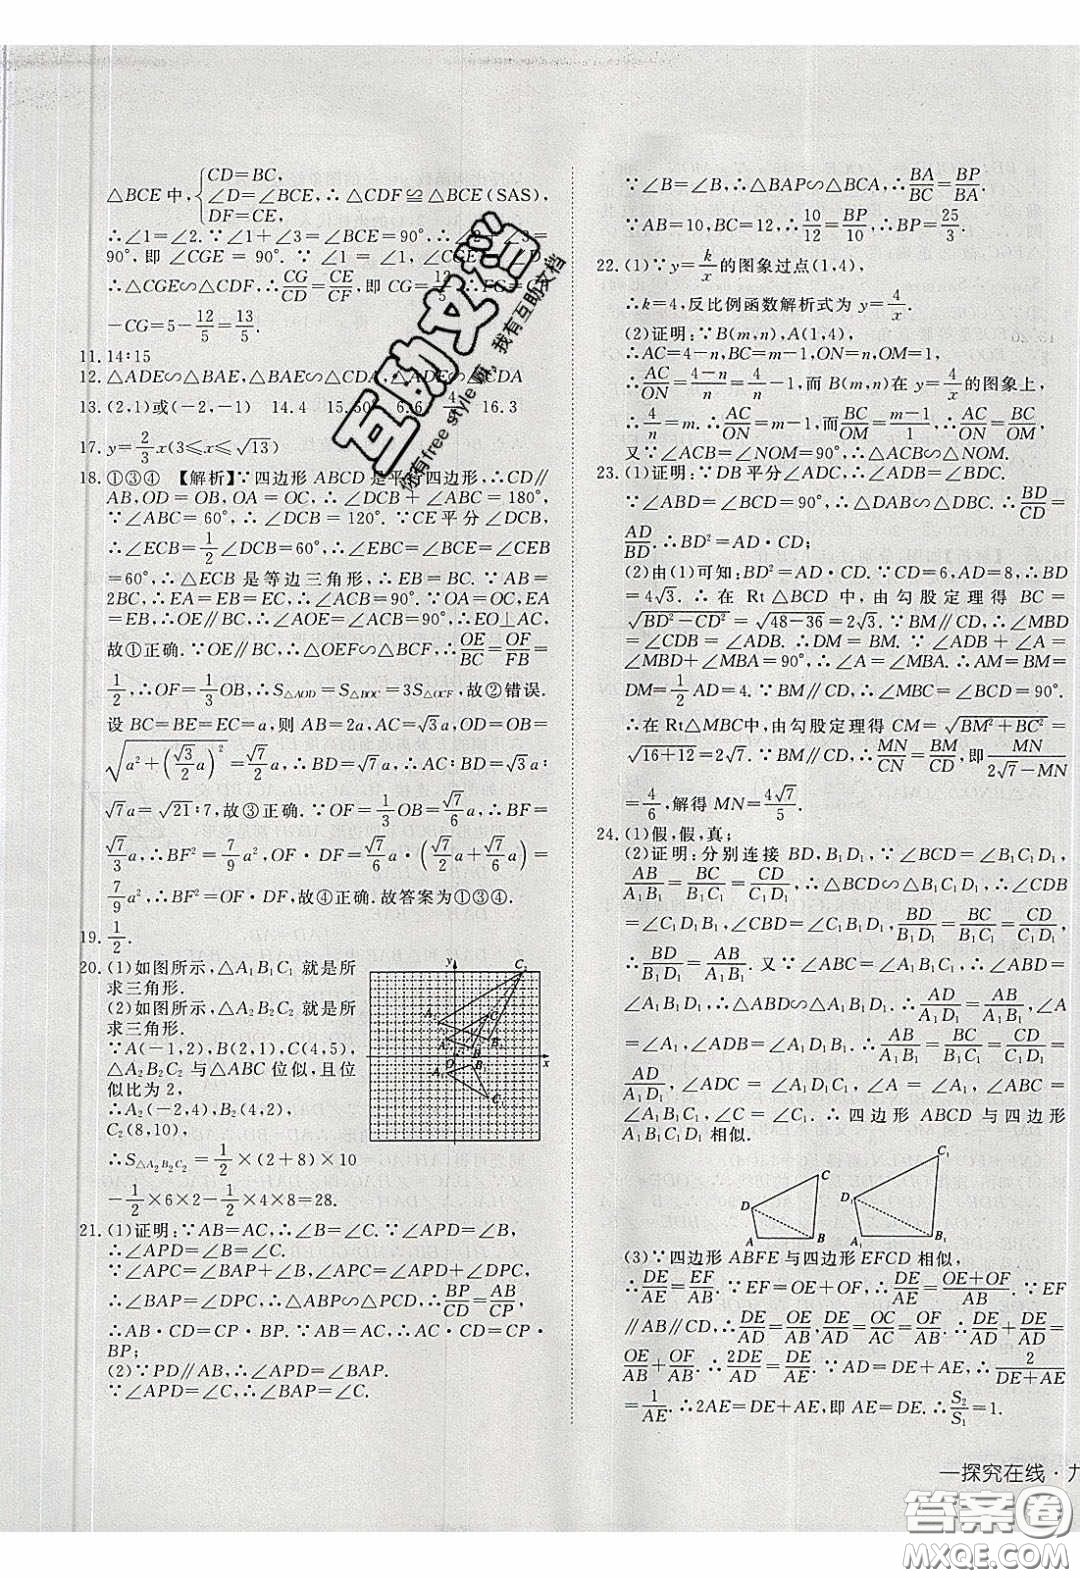 △BCE中,{CD=BC, ∠D=∠BCE, DF=CE, ∴△CDF≌△BCE(SAS),
∴∠1=∠2.∵∠1+∠3=∠BCE=90°,∴∠2+∠3=
90°,即∠CGE=90°.∵∠1=∠1,∠CGE=
∴△CGE∽△CDF,∴CG/CD=CE/CF,即CG=12/5,∴FG=CF
-CG=5-12/5=13/5.
11.14:15
12.△ADE∽△BAE,△BAE∽△CDA,△ADE∽△CDA
13.(2,1)或(-2,-1) 14.4 15.50 6.6 16.3
17.y=2/3x(3≤x≤√13)
18.①③④ 【解析】∵四边形ABCD是平行四边形,∴CD∥
AB,OD=OB,OA=OC,∴∠DCB+∠ABC=180°,
∵∠ABC=60°,∴∠DCB=120°.∵CE平分∠DCB,
∴∠ECB=1/2∠DCB=60°,∴∠EBC=∠BCE=∠CEB
=60°,∴△ECB是等边三角形,∴EB=BC.∵AB=
2BC,∴EA=EB=EC,∴∠ACB=90°.∵OA=OC,EA
=EB,∴OE∥BC,∴∠AOE=∠ACB=90°,∴EO⊥AC,
故①正确.∵OE∥BC,∴△OEF∽△BCF,∴OE/BC=OF/FB=
1/2,∴OF=1/3OB,∴S△AOD=S△BOC=3S△OCF,故②错误.
设BC=BE=EC=a,则AB=2a,AC=√3a,OD=OB=
√(a²+(√3/2a)²)=√7/2a,∴BD=√7a,∴AC:BD=√3a:
√7a=√21:7,故③正确.∵OF=1/3OB=√7/6a,∴BF=
√7/3a,∴BF²=7/9a²,OF·DF=√7/6a·(√7/2a+√7/6a)=
7/9a²,∴BF²=OF·DF,故④正确.故答案为①③④.
19.1/2.
20.(1)如图所示,△A₁B₁C₁就是所
求三角形.
(2)如图所示,△A₂B₂C₂就是所
求三角形.
∵A(-1,2),B(2,1),C(4,5),
△A₂B₂C₂与△ABC位似,且位
似比为2,
∴A₂(-2,4),B₂(4,2),
C₂(8,10),
∴S△A₂B₂C₂=1/2×(2+8)×10
-1/2×6×2-1/2×4×8=28.
21.(1)证明:∵AB=AC,∴∠B=∠C.∵∠APD=∠B,
∴∠APD=∠B=∠C.
∵∠APC=∠BAP+∠B,∠APC=∠APD+∠DPC,
∴∠BAP=∠DPC,∴△ABP∽△PCD,∴BP/CD=AB/CP,
∴AB·CD=CP·BP.∵AB=AC,∴AC·CD=CP·
BP;
(2)∵PD∥AB,∴∠APD=∠BAP.
∵∠APD=∠C,∴∠BAP=∠C.
∵∠B=∠B,∴△BAP∽△BCA,∴BA/BC=BP/BA.
∵AB=10,BC=12,∴10/12=BP/10,∴BP=25/3.
22.(1)∵y=k/x的图象过点(1,4),
∴k=4,反比例函数解析式为y=4/x.
(2)证明:∵B(m,n),A(1,4),
∴AC=4-n,BC=m-1,ON=n,OM=1,
∴AC/ON=(4-n)/n=4/n-1,而B(m,n)在y=4/x的图象上,
∴4/n=m.∴AC/ON=m-1,而BC/OM=(m-1)/1,∴AC/ON=BC/OM.
又∵∠ACB=∠NOM=90°,∴△ACB∽△NOM.
23.(1)证明:∵DB平分∠ADC,∴∠ADB=∠BDC.
∵∠ABD=∠BCD=90°,∴△ABD∽△BCD.∴BD/CD=
AD/BD.∴BD²=AD·CD;
(2)由(1)可知:BD²=AD·CD.∵CD=6,AD=8,∴BD=
4√3.∴在Rt△BCD中,由勾股定理得BC=
√(BD²-CD²)=√(48-36)=2√3.∵BM∥CD,∴∠MBD
=∠CDB=∠ADB.∴DM=BM.∵∠ADB+∠A=
∠MBD+∠MBA=90°,∴∠A=∠MBA.∴AM=BM=
DM=1/2AD=4.∵BM∥CD,∴∠MBC=∠BCD=90°.
∴在Rt△MBC中,由勾股定理得CM=√(BM²+BC²)=
√(16+12)=2√7.∵BM∥CD,∴MN/CN=BM/CD,即MN/(2√7-MN)
=4/6,解得MN=4√7/5.
24.(1)假,假,真;
(2)证明:分别连接BD,B₁D₁,∵∠BCD=∠B₁C₁D₁,
AB/A₁B₁=BC/B₁C₁=CD/C₁D₁,∴△BCD∽△B₁C₁D₁,∴∠CDB
=∠C₁D₁B₁,∠CBD=∠C₁B₁D₁,BD/B₁D₁=BC/B₁C₁=CD/C₁D₁,
∴BD/B₁D₁=AB/A₁B₁=AD/A₁D₁.又∵∠ABC=∠A₁B₁C₁,∴∠ABD=
∠A₁B₁D₁,∴△ABD∽△A₁B₁D₁.∴AD/A₁D₁=AB/A₁B₁,∠A
=∠A₁,∠ADB=∠A₁D₁B₁.∴AB/A₁B₁=BC/B₁C₁=CD/C₁D₁=
AD/A₁D₁,∠ADC=∠A₁D₁C₁,∠A=∠A₁,∠ABC=
∠A₁B₁C₁,∠C=∠C₁.∴四边形ABCD与四边形
A₁B₁C₁D₁相似.
(3)∵四边形ABFE与四边形EFCD相似,
∴DE/AE=EF/AB.∵EF=OE+OF,∴DE/AE=(OE+OF)/AB.∵EF
∥AB∥CD,∴DE/AD=OE/AB,DE/AD=OC/AC=OF/AB,∴DE/AD+DE/AD=
OE/AB+OF/AB.∴2DE/AD=DE/AE.∵AD=DE+AE,∴2/(DE+AE)
=1/AE.∴2AE=DE+AE,即AE=DE.∴S₂/S₁=1.
一探究在线·九
互助文档
你有free style 吗,我有互助文档
答案卷
MXQE.COM